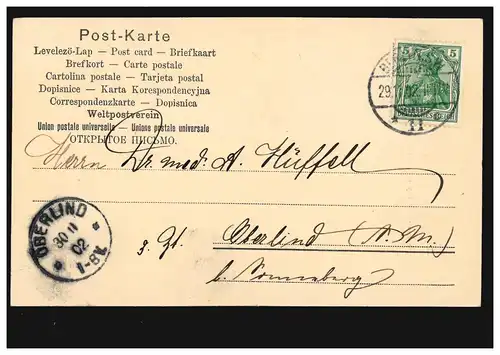 Post-Karte
Levelezö-Lap — Post card — Briefkaart
Brefkort — Carte postale
Cartolina postale — Tarjeta postal
Dopisnice - Karta Korespondencyjna
Correspondenzkarte — Dopisnica
Weltpostverein
Union postale universelle — Unione postale universale
ОТКРЫТОЕ ПИСЬМО.
5 5
29.
Herrn Dr. med. A. Hüffell
z. Zt. Oberlind (S. M.)
b. Sonneberg
OBERLIND
30 11
02